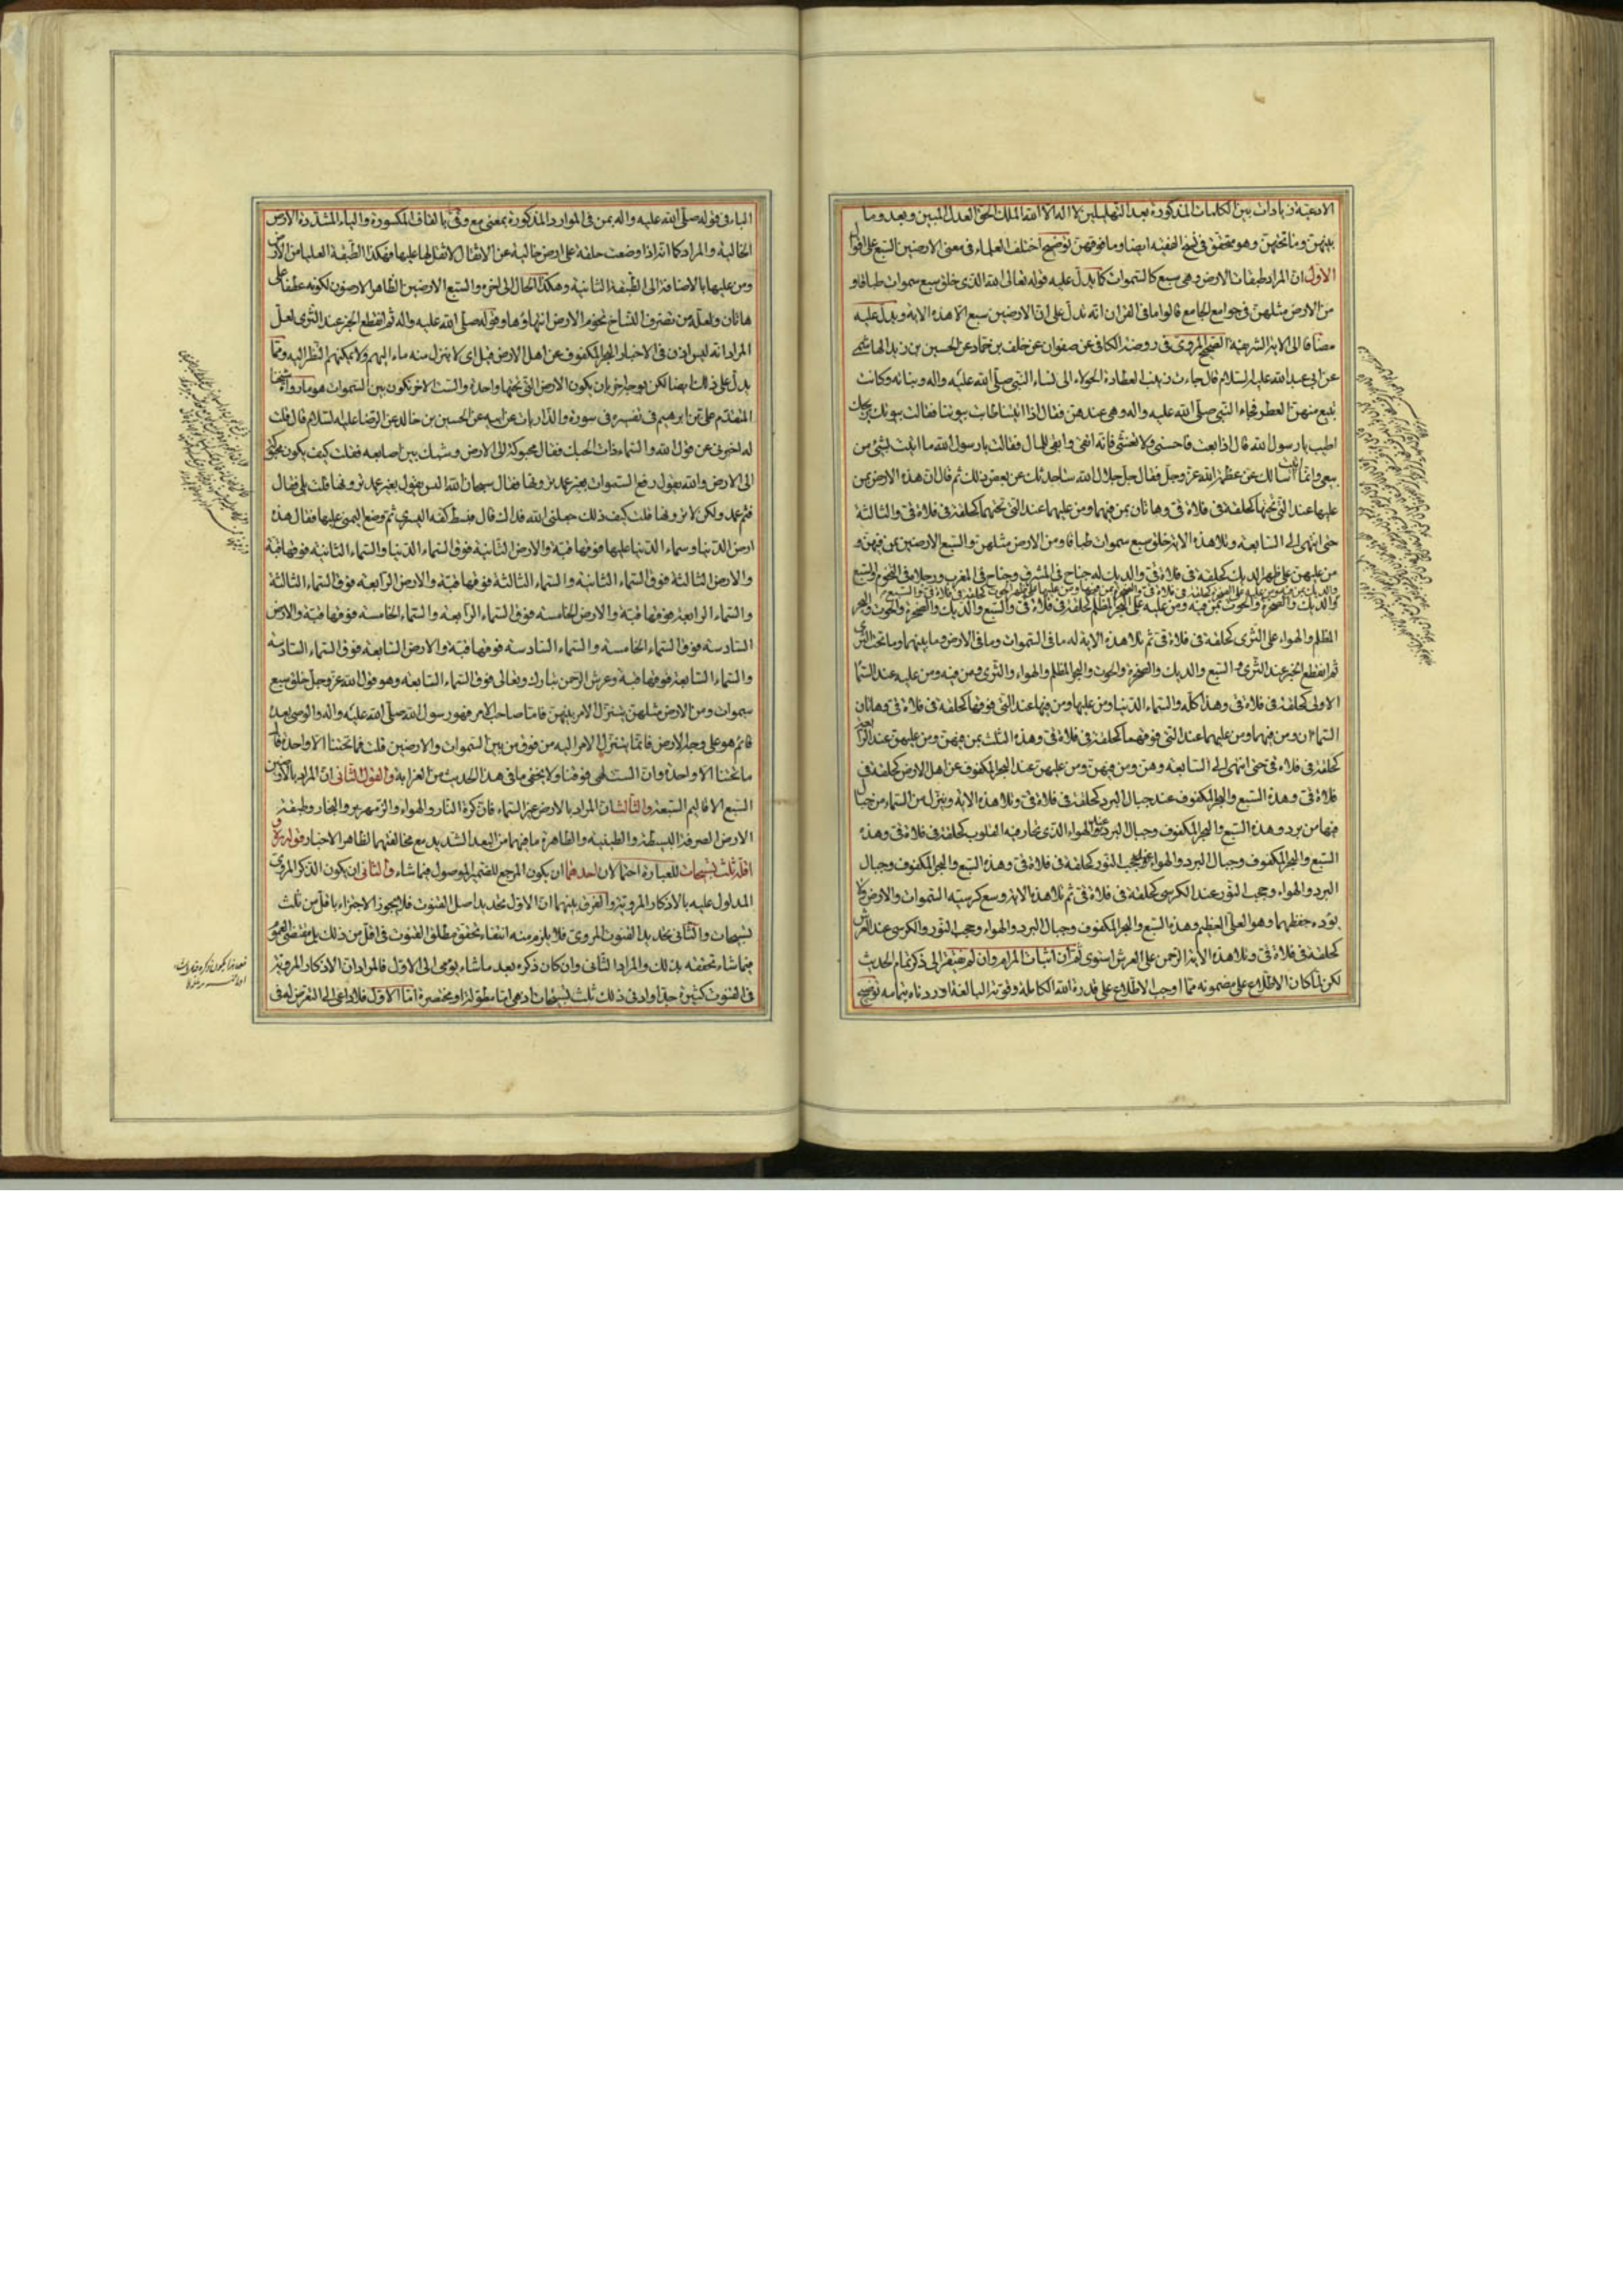 الادعية زيادات بين الكلمات المذكورة بعد التهليلين لا اله الا الله الملك الحق العدل المبين وبعد وما
بينهن وما تحتهن وهو متحقق في نسخ الفقيه ايضا وما فوقهن توضيح اختلف العلماء في معنى الارضين السبع على اقوال
الاول ان المراد طبقات الارض وهي سبع كالسموات كما يدل عليه قوله تعالى الله الذي خلق سبع سموات طباقا و
من الارض مثلهن في جوامع الجامع قالوا ما في القران اية تدل على ان الارضين سبع الا هذه الاية ويدل عليه
مضافا الى الاية الشريفة الصحيح المروي في روضة الكافي عن صفوان عن خلف بن حماد عن الحسين بن زيد الهاشمي
عن ابي عبد الله عليه السلام قال جاءت زينب العطارة الحولاء الى نساء النبي صلى الله عليه واله وبناته وكانت
تبيع منهن العطر فجاء النبي صلى الله عليه واله وهي عندهن فقال اذا اتيتنا طابت بيوتنا فقالت بيوتك بريحك
اطيب يا رسول الله قال اذا بعت فاحسني ولا تغشي فانه اتقى وابقى للمال فقالت يا رسول الله ما اتيت بشئ من
بيعي وانما اتيت اسالك عن عظمة الله عز وجل فقال جل جلال الله ساحدثك عن بعض ذلك ثم قال ان هذه الارض بمن
عليها عند التي تحتها كحلقة في فلاة قي وهاتان بمن فيهما ومن عليهما عند التي تحتهما كحلقة في فلاة قي والثالثة
حتى انتهى الى السابعة وتلا هذه الاية خلق سبع سموات طباقا ومن الارض مثلهن والسبع الارضين بمن فيهن و
من عليهن على ظهر الديك كحلقة في فلاة قي والديك له جناح في المشرق وجناح في المغرب ورجلاه في التخوم والسبع
والديك والصخرة والحوت بمن فيه ومن عليه على البحر المظلم كحلقة في فلاة قي والسبع والديك والصخرة والحوت والبحر
المظلم والهواء على الثرى كحلقة في فلاة قي ثم تلا هذه الاية له ما في السموات وما في الارض وما بينهما وما تحت الثرى
ثم انقطع الخبر عند الثرى والسبع والديك والصخرة والحوت والبحر المظلم والهواء والثرى ومن فيه ومن عليه عند السماء
الاولى كحلقة في فلاة قي وهذا كله والسماء الدنيا ومن عليها ومن فيها عند التي فوقها كحلقة في فلاة قي وهاتان
السماءان ومن فيهما ومن عليهما عند التي فوقهما كحلقة في فلاة قي وهذه الثلث بمن فيهن ومن عليهن عند الرابعة
كحلقة في فلاة قي حتى انتهى الى السابعة وهن ومن فيهن ومن عليهن عند البحر المكفوف عن اهل الارض كحلقة في
فلاة قي وهذه السبع والبحر المكفوف عند جبال البرد كحلقة في فلاة قي وتلا هذه الاية وينزل من السماء من جبال
فيها من برد وهذه السبع والبحر المكفوف وجبال البرد عند الهواء الذي تحار فيه القلوب كحلقة في فلاة قي وهذه
السبع والبحر المكفوف وجبال البرد والهواء عند حجب النور كحلقة في فلاة قي وهذه السبع والبحر المكفوف وجبال
البرد والهواء وحجب النور عند الكرسي كحلقة في فلاة قي ثم تلا هذه الاية وسع كرسيه السموات والارض ولا
يؤده حفظهما وهو العلي العظيم وهذه السبع والبحر المكفوف وجبال البرد والهواء وحجب النور والكرسي عند العرش
كحلقة في فلاة قي وتلا هذه الاية الرحمن على العرش استوى ثم ان اثبات المرام وان لم يفتقر الى ذكر تمام الحديث
لكن لما كان الاطلاع على مضمونه مما اوجب الاطلاع على قدرة الله الكاملة وقوته البالغة اوردناه بتمامه توضيح
الباء في قوله صلى الله عليه واله بمن في الموارد المذكورة بمعنى مع وقي بالقاف المكسورة والياء المشددة الارض
الخالية والمراد كما انه اذا وضعت حلقة على ارض خالية عن الاثقال لا ثقل لها عليها فهكذا الطبقة العليا من الارض
ومن عليها بالاضافة الى الطبقة الثانية وهكذا الحال الى اخره والسبع الارضين الظاهر الارضون لكونه عطفا على
هاتان ولعله من تصرف النساخ تخوم الارض انتهاؤها وقوله صلى الله عليه واله ثم انقطع الخبر عند الثرى لعل
المراد انه ليس اذن في الاخبار البحر المكفوف عن اهل الارض قيل اي لا ينزل منه ماء اليهم ولا يمكنهم النظر اليه ومما
يدل على ذلك ايضا لكن بوجه اخر بان يكون الارض التي تحتها واحدة والست الاخر تكون بين السموات هو ما رواه شيخنا
المتقدم علي بن ابرهيم في تفسيره في سورة والذاريات عن ابيه عن الحسين بن خالد عن الرضا عليه السلام قال قلت
له اخبرني عن قول الله والسماء ذات الحبك فقال محبوكة الى الارض وشبك بين اصابعه فقلت كيف يكون محبوكة
الى الارض والله يقول رفع السموات بغير عمد ترونها فقال سبحان الله اليس يقول بغير عمد ترونها قلت بلى فقال
فثم عمد ولكن لا ترونها قلت كيف ذلك جعلني الله فداك قال فبسط كفه اليسرى ثم وضع اليمنى عليها فقال هذه
ارض الدنيا وسماء الدنيا عليها فوقها قبة والارض الثانية فوق السماء الدنيا والسماء الثانية فوقها قبة
والارض الثالثة فوق السماء الثانية والسماء الثالثة فوقها قبة والارض الرابعة فوق السماء الثالثة
والسماء الرابعة فوقها قبة والارض الخامسة فوق السماء الرابعة والسماء الخامسة فوقها قبة والارض
السادسة فوق السماء الخامسة والسماء السادسة فوقها قبة والارض السابعة فوق السماء السادسة
والسماء السابعة فوقها قبة وعرش الرحمن تبارك وتعالى فوق السماء السابعة وهو قول الله عز وجل خلق سبع
سموات ومن الارض مثلهن يتنزل الامر بينهن فاما صاحب الامر فهو رسول الله صلى الله عليه واله والوصي بعده
قائم هو على وجه الارض فانما يتنزل الامر اليه من فوق من بين السموات والارضين قلت فما تحتنا الا واحدة قال
ما تحتنا الا واحدة وان الست لهي فوقنا ولا يخفى ما في هذا الحديث من الغرابة والقول الثاني ان المراد بالارضين
السبع الاقاليم السبعة والثالث ان المراد بالارض غير السماء فان كرة النار والهواء والزمهرير والبخار وطبقة
الارض الصرفة البسيطة والطينية والظاهرة ما فيهما من البعد الشديد مع مخالفتهما لظاهر الاخبار قوله و
اقله ثلث تسبيحات للعبارة احتمالان احدهما ان يكون المرجع للضمير الموصول فيما شاء والثاني ان يكون الذكر المروي
المدلول عليه بالاذكار المروية والفرق بينهما ان الاول تحديد اصل القنوت فلا يجوز الاجتزاء باقل من ثلث
تسبيحات والثاني تحديد القنوت المروي فلا يلزم منه انتفاء تحقق مطلق القنوت في اقل من ذلك بل مقتضى العموم
فيما شاء تحققه بذلك والمراد الثاني وان كان ذكره بعد ما شاء يومي الى الاول فالمراد ان الاذكار المروية
في القنوت كثيرة جدا وادنى ذلك ثلث تسبيحات اذ هي اما مطولة او مختصرة اما الاول فلا داعي الى التعرض له في